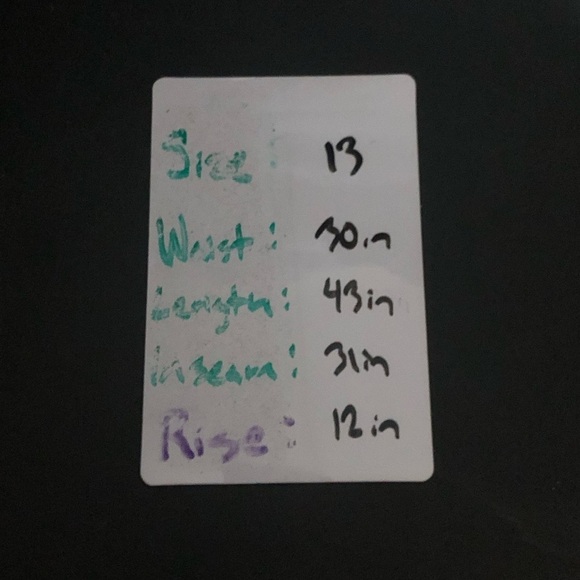 Size: 13
Waist: 30in
Length: 43in
inseam: 31in
Rise: 12in